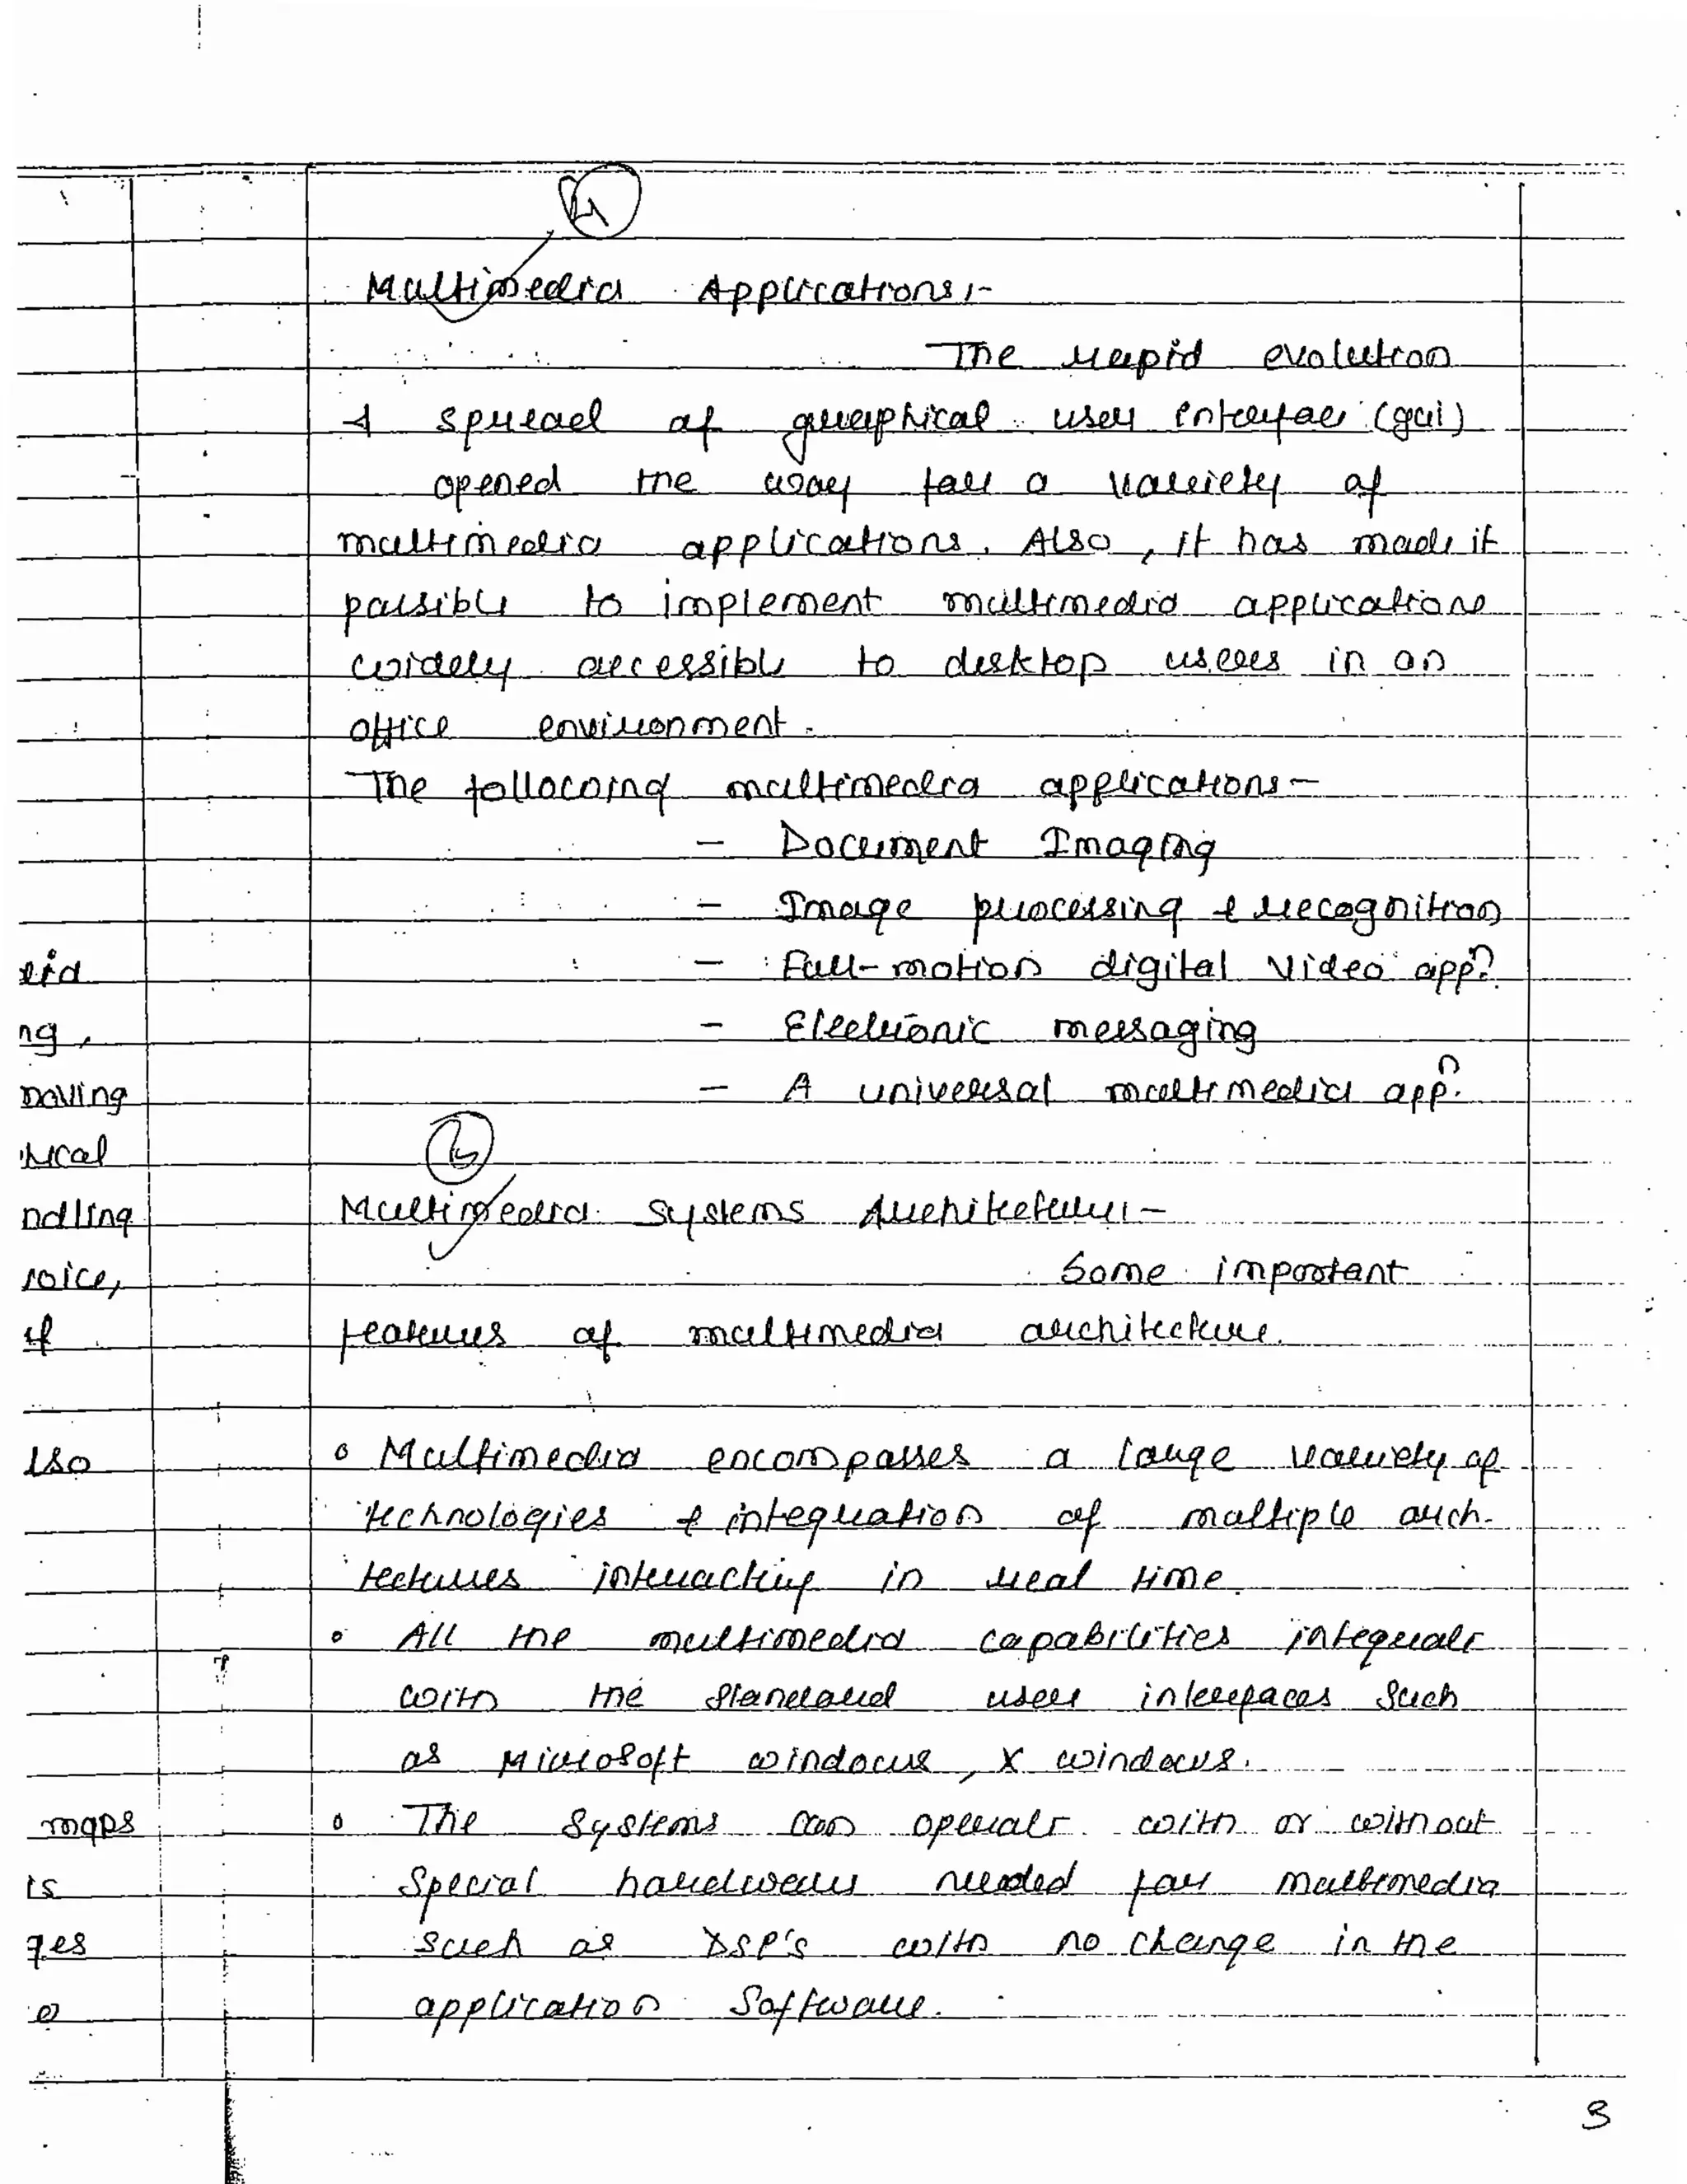 4
Multimedia Applications :-
The rapid evolution
& spread of graphical user interface (gui)
opened the way for a variety of
multimedia applications. Also, it has made it
possible to implement multimedia applications
widely accessible to desktop users in an
office environment.
The following multimedia applications -
- Document Imaging
- Image processing & recognition
- Full-motion digital Video appn.
- Electronic messaging
- A universal multimedia appn.
Multimedia Systems Architecture :-
Some important
features of multimedia architecture.
o Multimedia encompasses a large variety of
technologies & integration of multiple arch-
tectures interacting in real time.
o All the multimedia capabilities integrate
with the standard user interfaces such
as Microsoft windows, X windows.
o The Systems can operate with or without
Special hardware needed for multimedia
such as DSP's with no change in the
application Software.
ng,
ndling
maps
is
ges
3